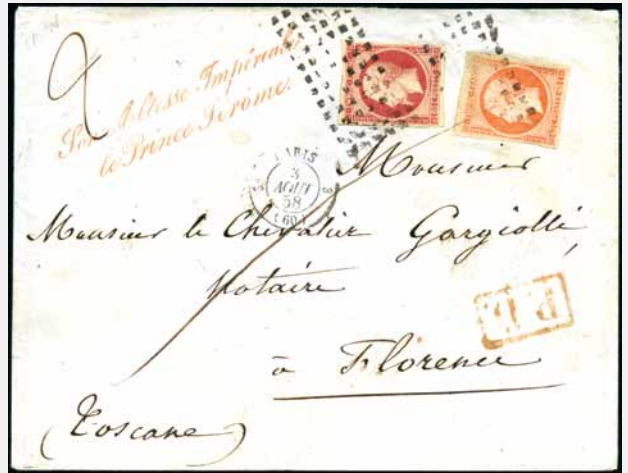 2
Son Altesse Impériale
le Prince Jérôme.
PARIS
3
AOUT
58
(60)
Monsieur
Monsieur le Chevalier Gargiolli,
Notaire
à Florence
(Toscane)
P.P.